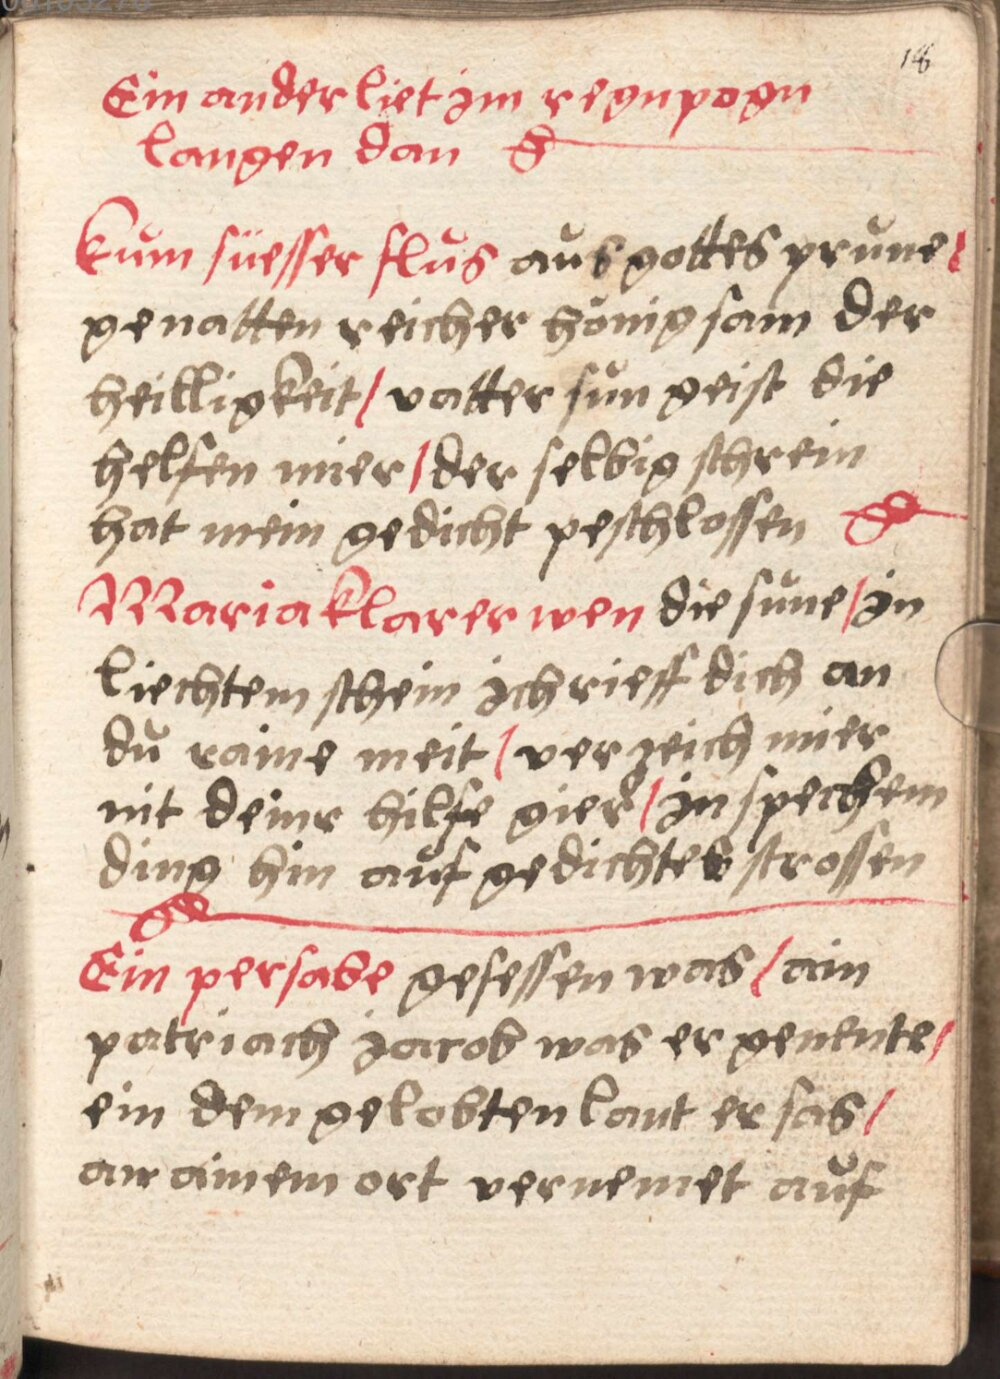 18
Ein ander liet im regnpogn
langen dan
kum süesser flus aus gottes prune /
genatten reicher hönigsam der
heilligkeit / vatter sun geist die
helfen mier / der selbig schrein
hat mein gedicht peschlossen
Maria klarer wen die sune / jn
liechtem schein jch rieff dich an
du raine meit / verzeich mier
nit deinr hilfe gier / jn spechem
ding hin auf gedichtes strossen
Ein persabe gesessen was / ain
patriach jacob was er genente /
ein dem gelobten lant er sas /
an ainem ort vernemet auf